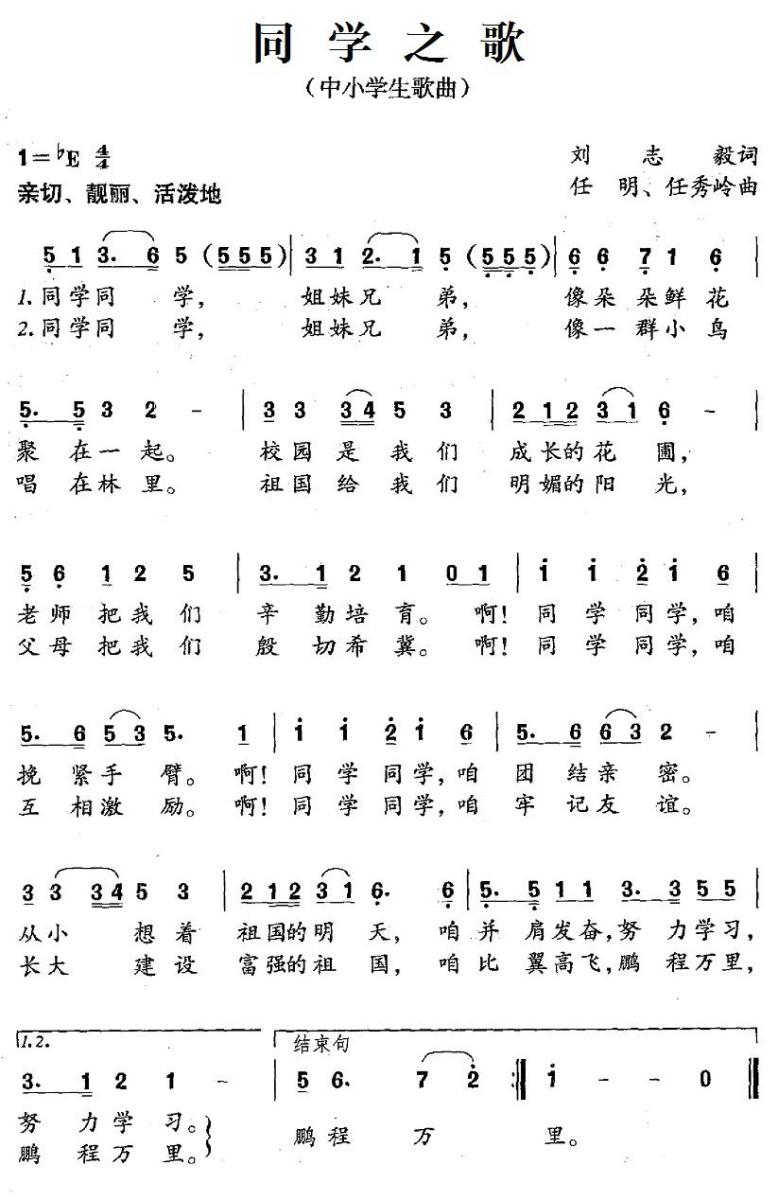 同学之歌
（中小学生歌曲）
1=♭E 4/4
刘志毅词
亲切、靓丽、活泼地
任明、任秀岭曲
5 1 3. 6 5 (5 5 5) | 3 1 2. 1 5 (5 5 5) | 6 6 7 1 6 |
1.同学同学， 姐妹兄弟， 像朵朵鲜花
2.同学同学， 姐妹兄弟， 像一群小鸟
5. 5 3 2 - | 3 3 3 4 5 3 | 2 1 2 3 1 6 - |
聚在一起。 校园是我们 成长的花圃，
唱在林里。 祖国给我们 明媚的阳光，
5 6 1 2 5 | 3. 1 2 1 0 1 | i i 2 i 6 |
老师把我们 辛勤培育。啊！同学同学，咱
父母把我们 殷切希冀。啊！同学同学，咱
5. 6 5 3 5. 1 | i i 2 i 6 | 5. 6 6 3 2 - |
挽紧手臂。啊！同学同学，咱 团结亲密。
互相激励。啊！同学同学，咱 牢记友谊。
3 3 3 4 5 3 | 2 1 2 3 1 6. 6 | 5. 5 1 1 3. 3 5 5 |
从小想着 祖国的明天， 咱并肩发奋，努力学习，
长大建设 富强的祖国， 咱比翼高飞，鹏程万里，
1.2.
结束句
3. 1 2 1 - | 5 6. 7 2 :‖ i - - 0 ‖
努力学习。
鹏程万里。
鹏程万里。